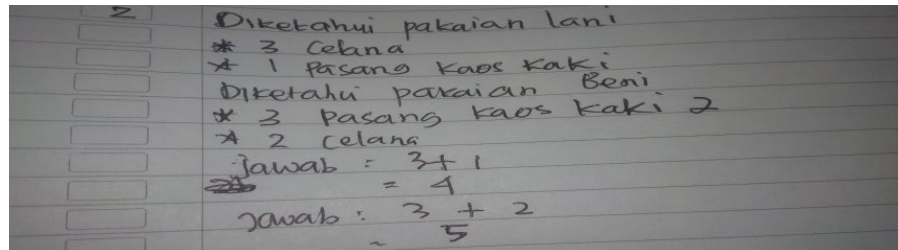 2 Diketahui pakaian lani
* 3 Celana
* 1 Pasang kaos kaki
Diketahui pakaian Beni
* 3 Pasang kaos kaki 2
* 2 celana
Jawab : 3+1
= 4
Jawab : 3 + 2
~ 5